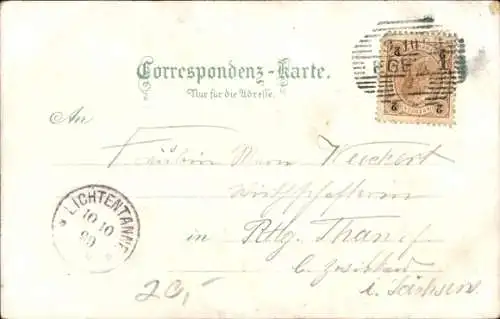 Correspondenz-Karte.
Nur für die Adresse.
An
Fräulein Weickert
Wirthschafterin
in Rttg. Than
b. Zwickau
i. Sachsen
LICHTENTANNE
10 10
99
2 2
20,-